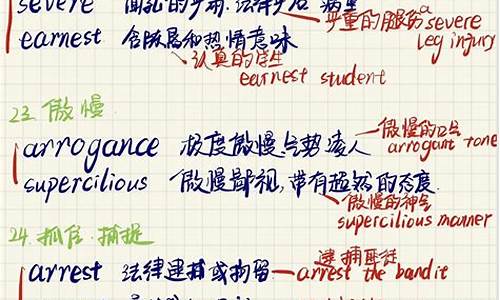 severe
严重的腿伤 a severe
leg injury
earnest 含版高和热情意味
认真的学生
earnest student
23. 傲慢
arrogance 极度傲慢.气势凌人
傲慢的口气
arrogant tone
supercilious 傲慢鄙视,带有超然的态度
傲慢的神气
supercilious manner
24. 抓住.捕捉
逮捕匪徒
arrest 法律逮捕或拘留
arrest the bandit